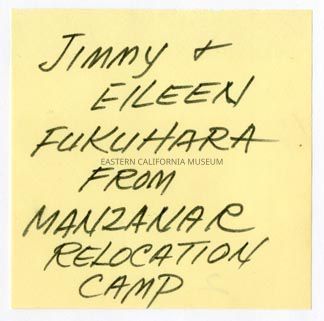 JIMMY &
EILEEN
FUKUHARA
EASTERN CALIFORNIA MUSEUM
FROM
MANZANAR
RELOCATION
CAMP